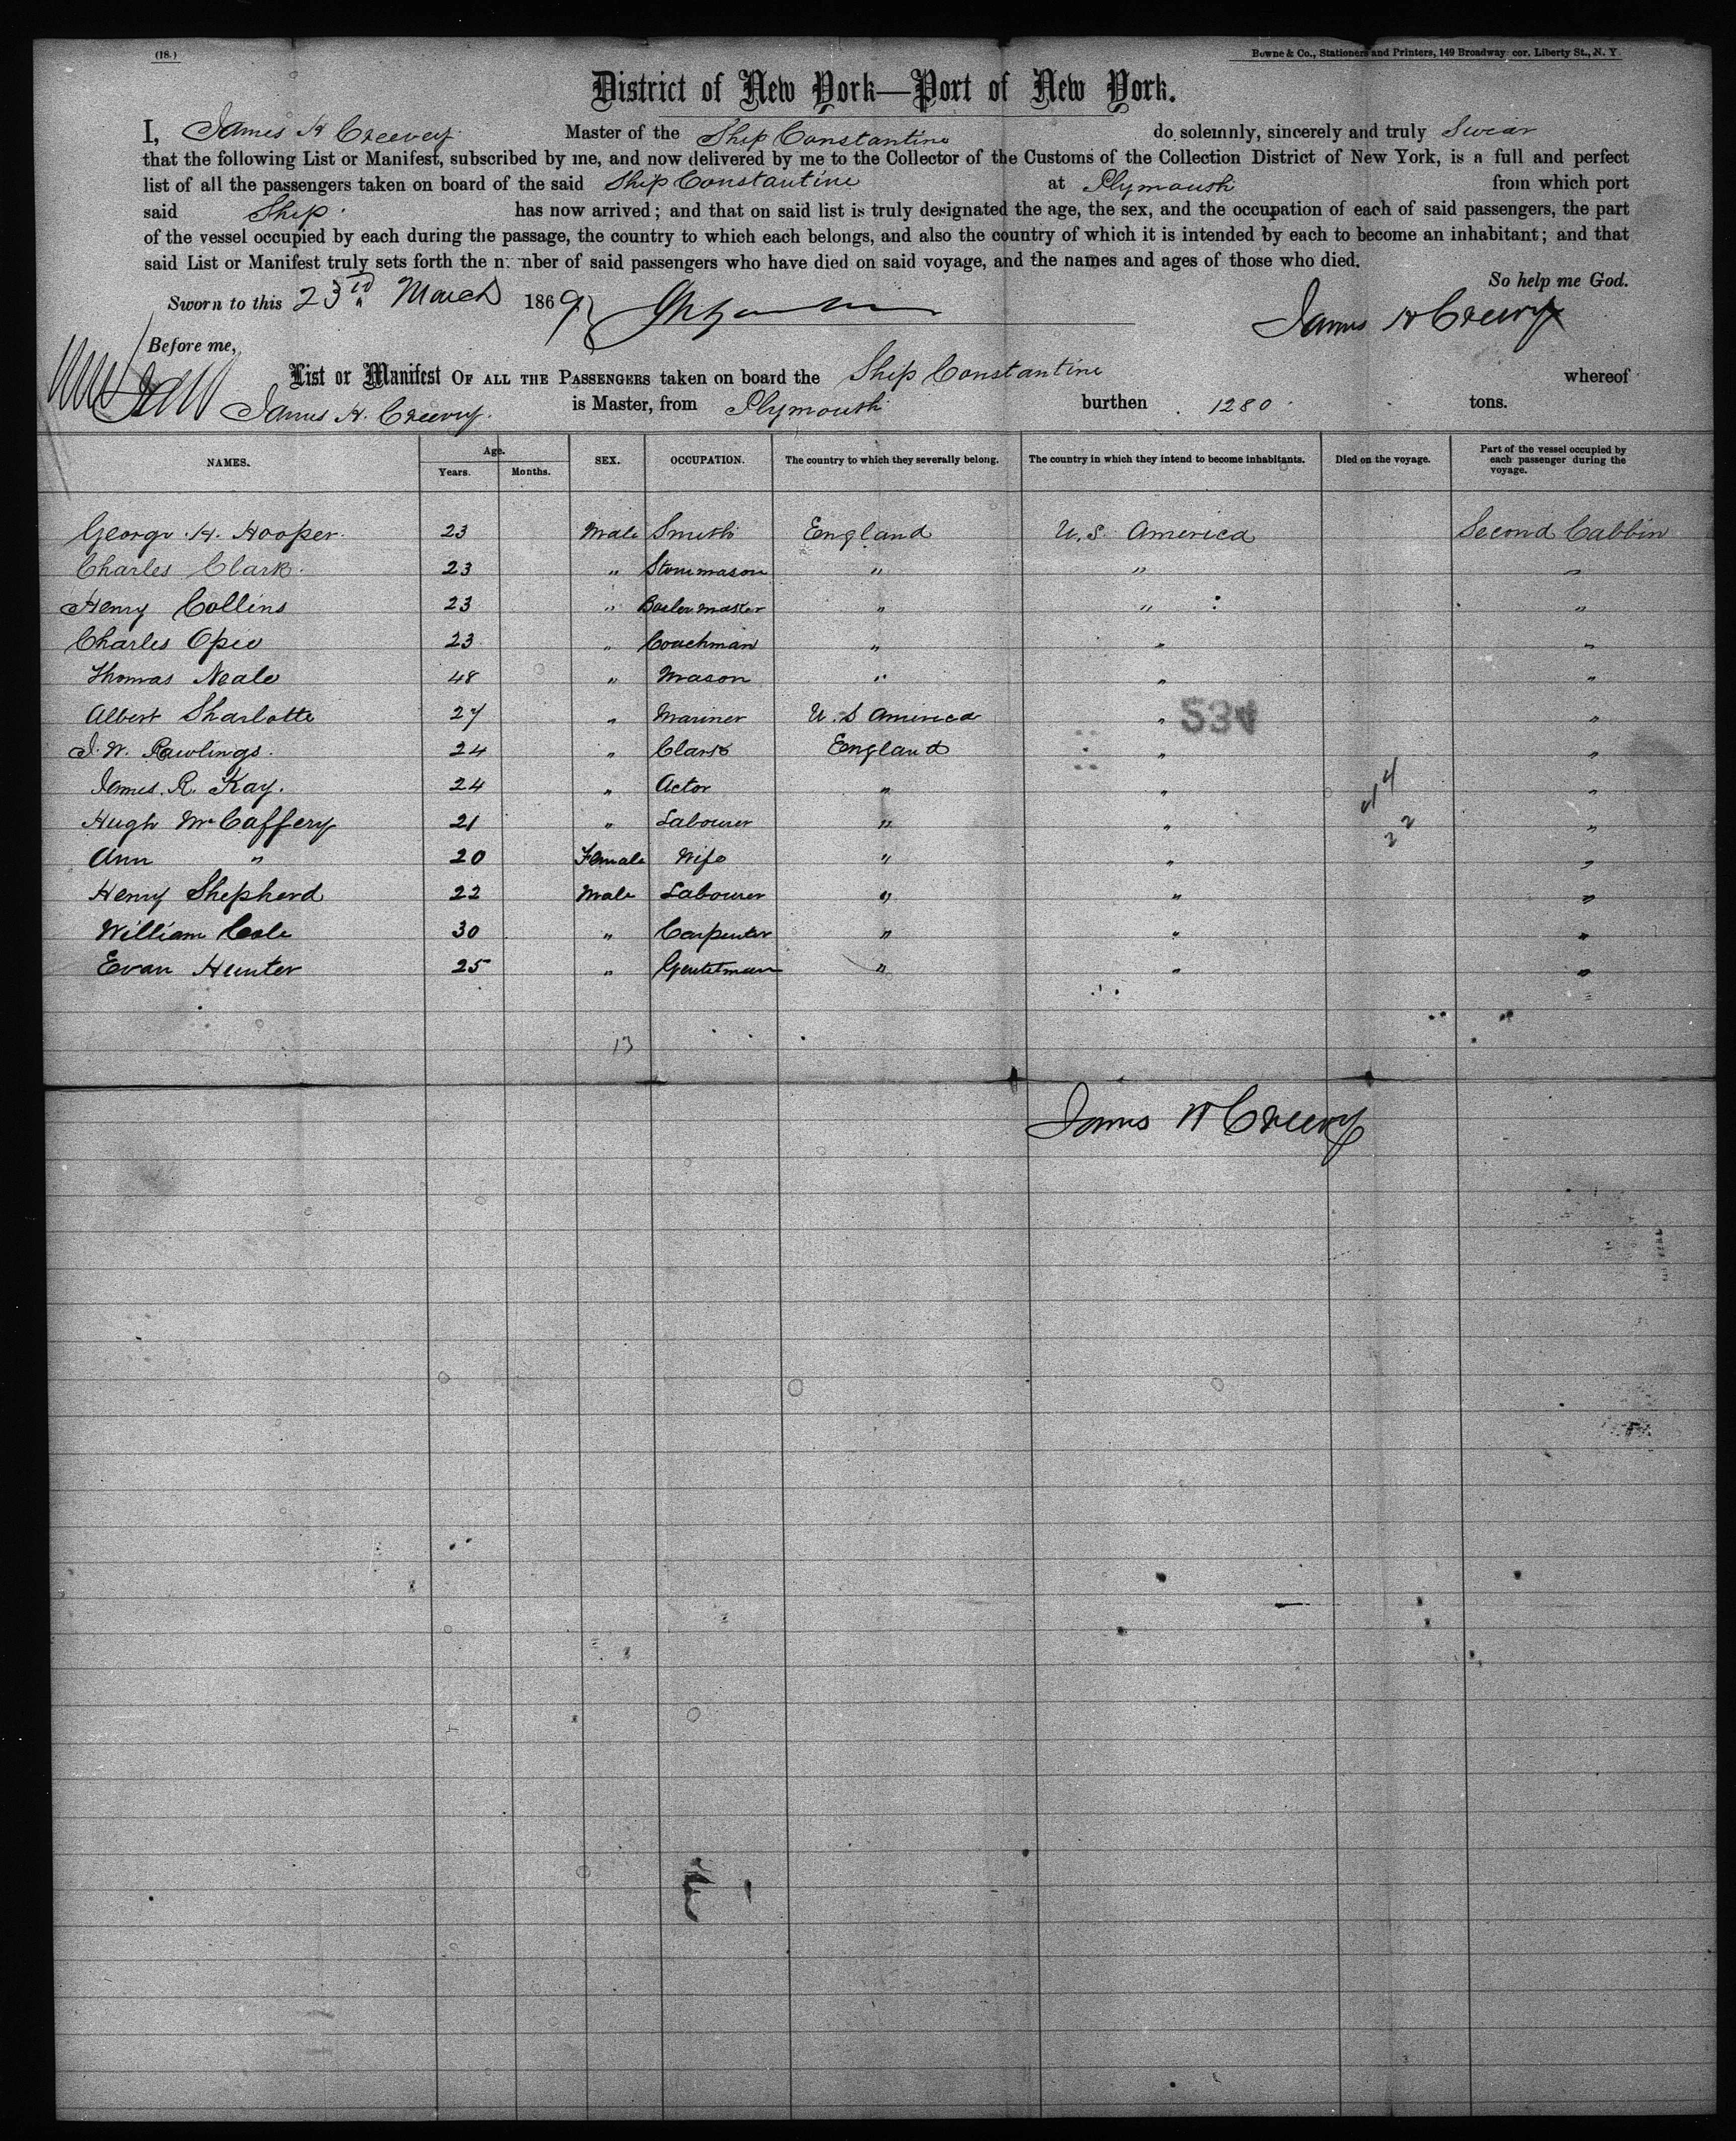 (18.)
Bowne & Co., Stationers and Printers, 149 Broadway cor. Liberty St., N. Y
District of New York—Port of New York.
I, James H Creevey Master of the Ship Constantine do solemnly, sincerely and truly Swear
that the following List or Manifest, subscribed by me, and now delivered by me to the Collector of the Customs of the Collection District of New York, is a full and perfect
list of all the passengers taken on board of the said Ship Constantine at Plymouth from which port
said Ship has now arrived; and that on said list is truly designated the age, the sex, and the occupation of each of said passengers, the part
of the vessel occupied by each during the passage, the country to which each belongs, and also the country of which it is intended by each to become an inhabitant; and that
said List or Manifest truly sets forth the number of said passengers who have died on said voyage, and the names and ages of those who died.
So help me God.
Sworn to this 23rd March 1869
James H Creevy
Before me,
List or Manifest OF ALL THE PASSENGERS taken on board the Ship Constantine whereof
James H. Creevy. is Master, from Plymouth burthen 1280 tons.
NAMES. Age. Years. Months. SEX. OCCUPATION. The country to which they severally belong. The country in which they intend to become inhabitants. Died on the voyage. Part of the vessel occupied by each passenger during the voyage.
George H. Hooper 23 Male Smith England U.S. America Second Cabbin
Charles Clark 23 " Stonmason " " "
Henry Collins 23 " " " "
Charles Opie 23 " Coachman " " "
Thomas Neale 48 " Mason " " "
Albert Sharlotte 27 " Mariner U.S America " "
534
J. W. Rawlings 24 " Clark England " "
James R. Kay. 24 " Actor " " "
Hugh McCaffery 21 " Labourer " " "
Ann " 20 Female Wife " " "
Henry Shepherd 22 Male Labourer " " "
William Cole 30 " Carpenter " " "
Evan Hunter 25 " Gentelman " " "
13
James H Creevy